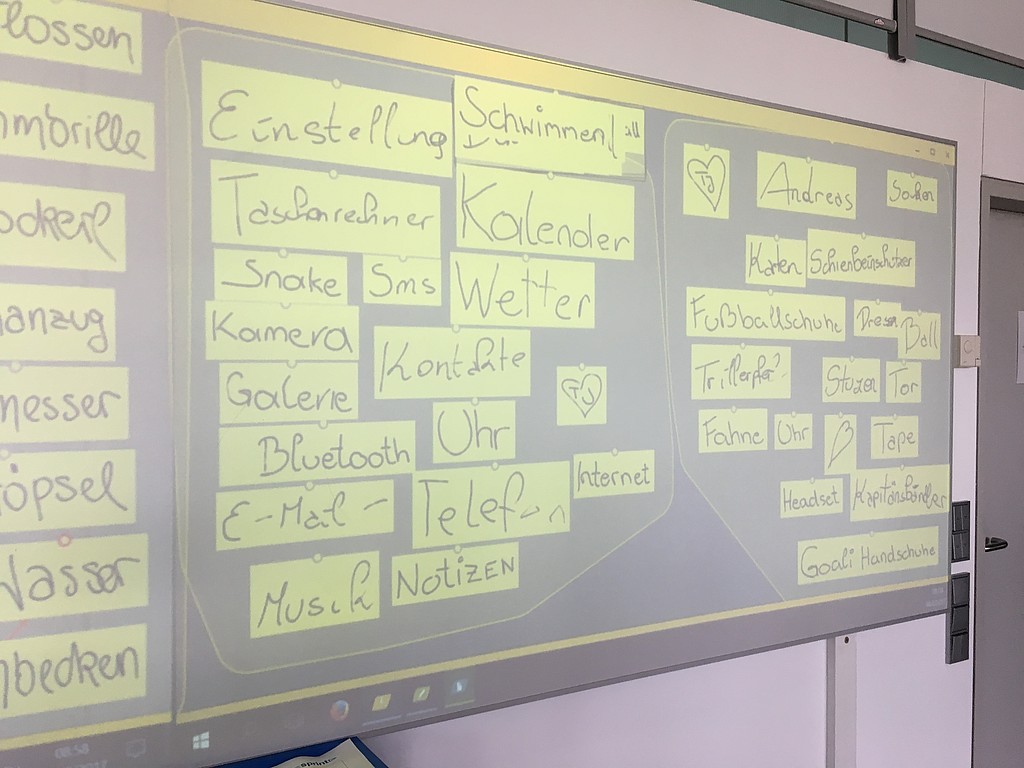 lossen
mbrille
anzug
messer
öpsel
Wasser
becken
Einstellung
Schwimmen
Taschenrechner
Kalender
Snake
Sms
Wetter
Kamera
Kontakte
Galerie
Bluetooth
Uhr
E-Mail
Telefon
Internet
Musik
NOTIZEN
Andreas
Socken
Karten
Schienbeinschützer
Fußballschuhe
Dressen
Ball
Stutzen
Tor
Fahne
Uhr
Tape
Headset
Goali Handschuhe
08:58